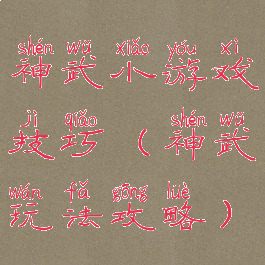 shén wǔ xiǎo yóu xì
神武小游戏
jì qiǎo shén wǔ
技巧（神武
wán fǎ gōng lüè
玩法攻略）